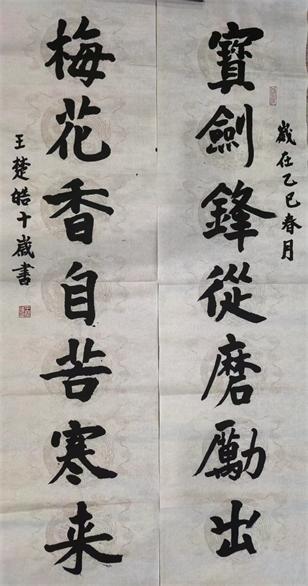 歲在乙巳春月
寶劍鋒從磨勵出
梅花香自苦寒来
王楚皓十歲書